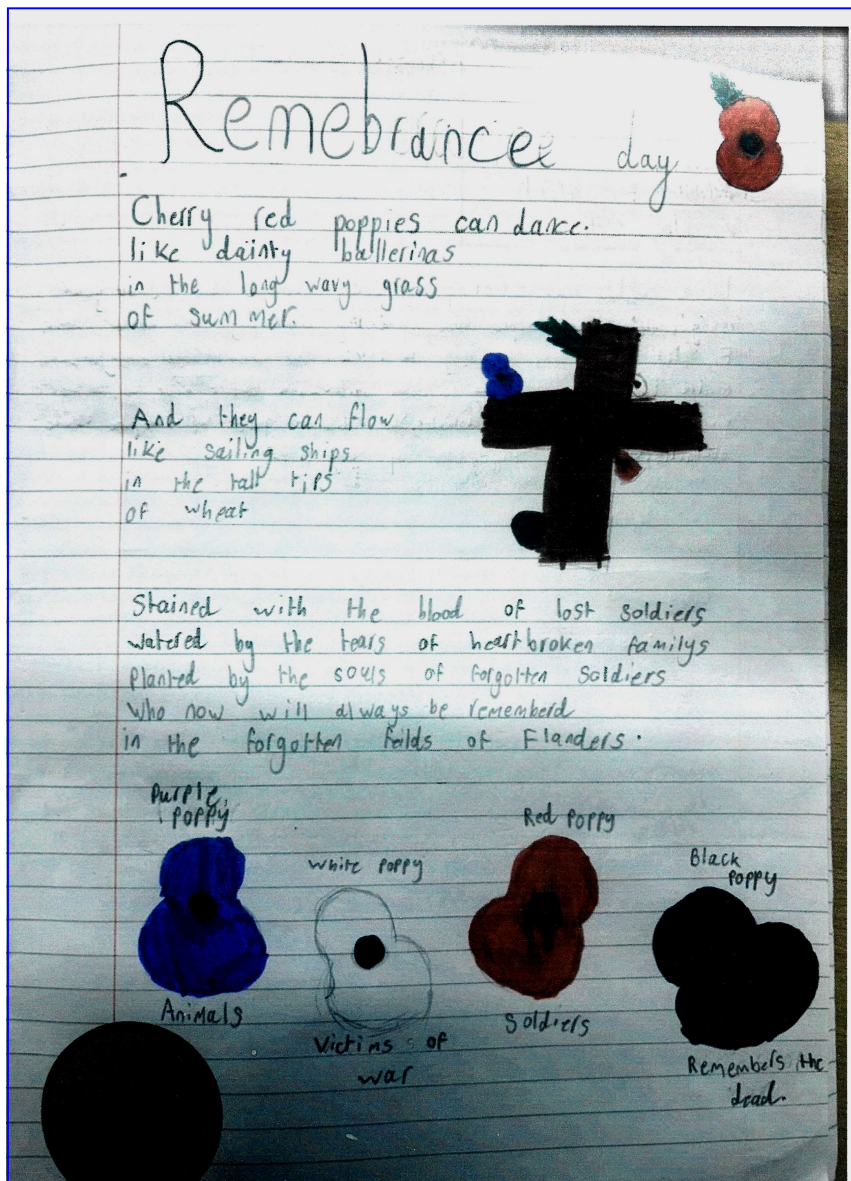 Remebrance day
Cherry red poppies can dance.
like dainty ballerinas
in the long wavy grass
of summer.
And they can flow
like sailing ships
in the tall tips
of wheat
Stained with the blood of lost soldiers
watered by the tears of heartbroken familys
Planted by the souls of forgotten soldiers
who now will always be rememberd
in the forgotten feilds of Flanders.
Purple
poppy
White poppy
Red poppy
Black
poppy
Animals
Victims of
war
Soldiers
Remembers the
dead.